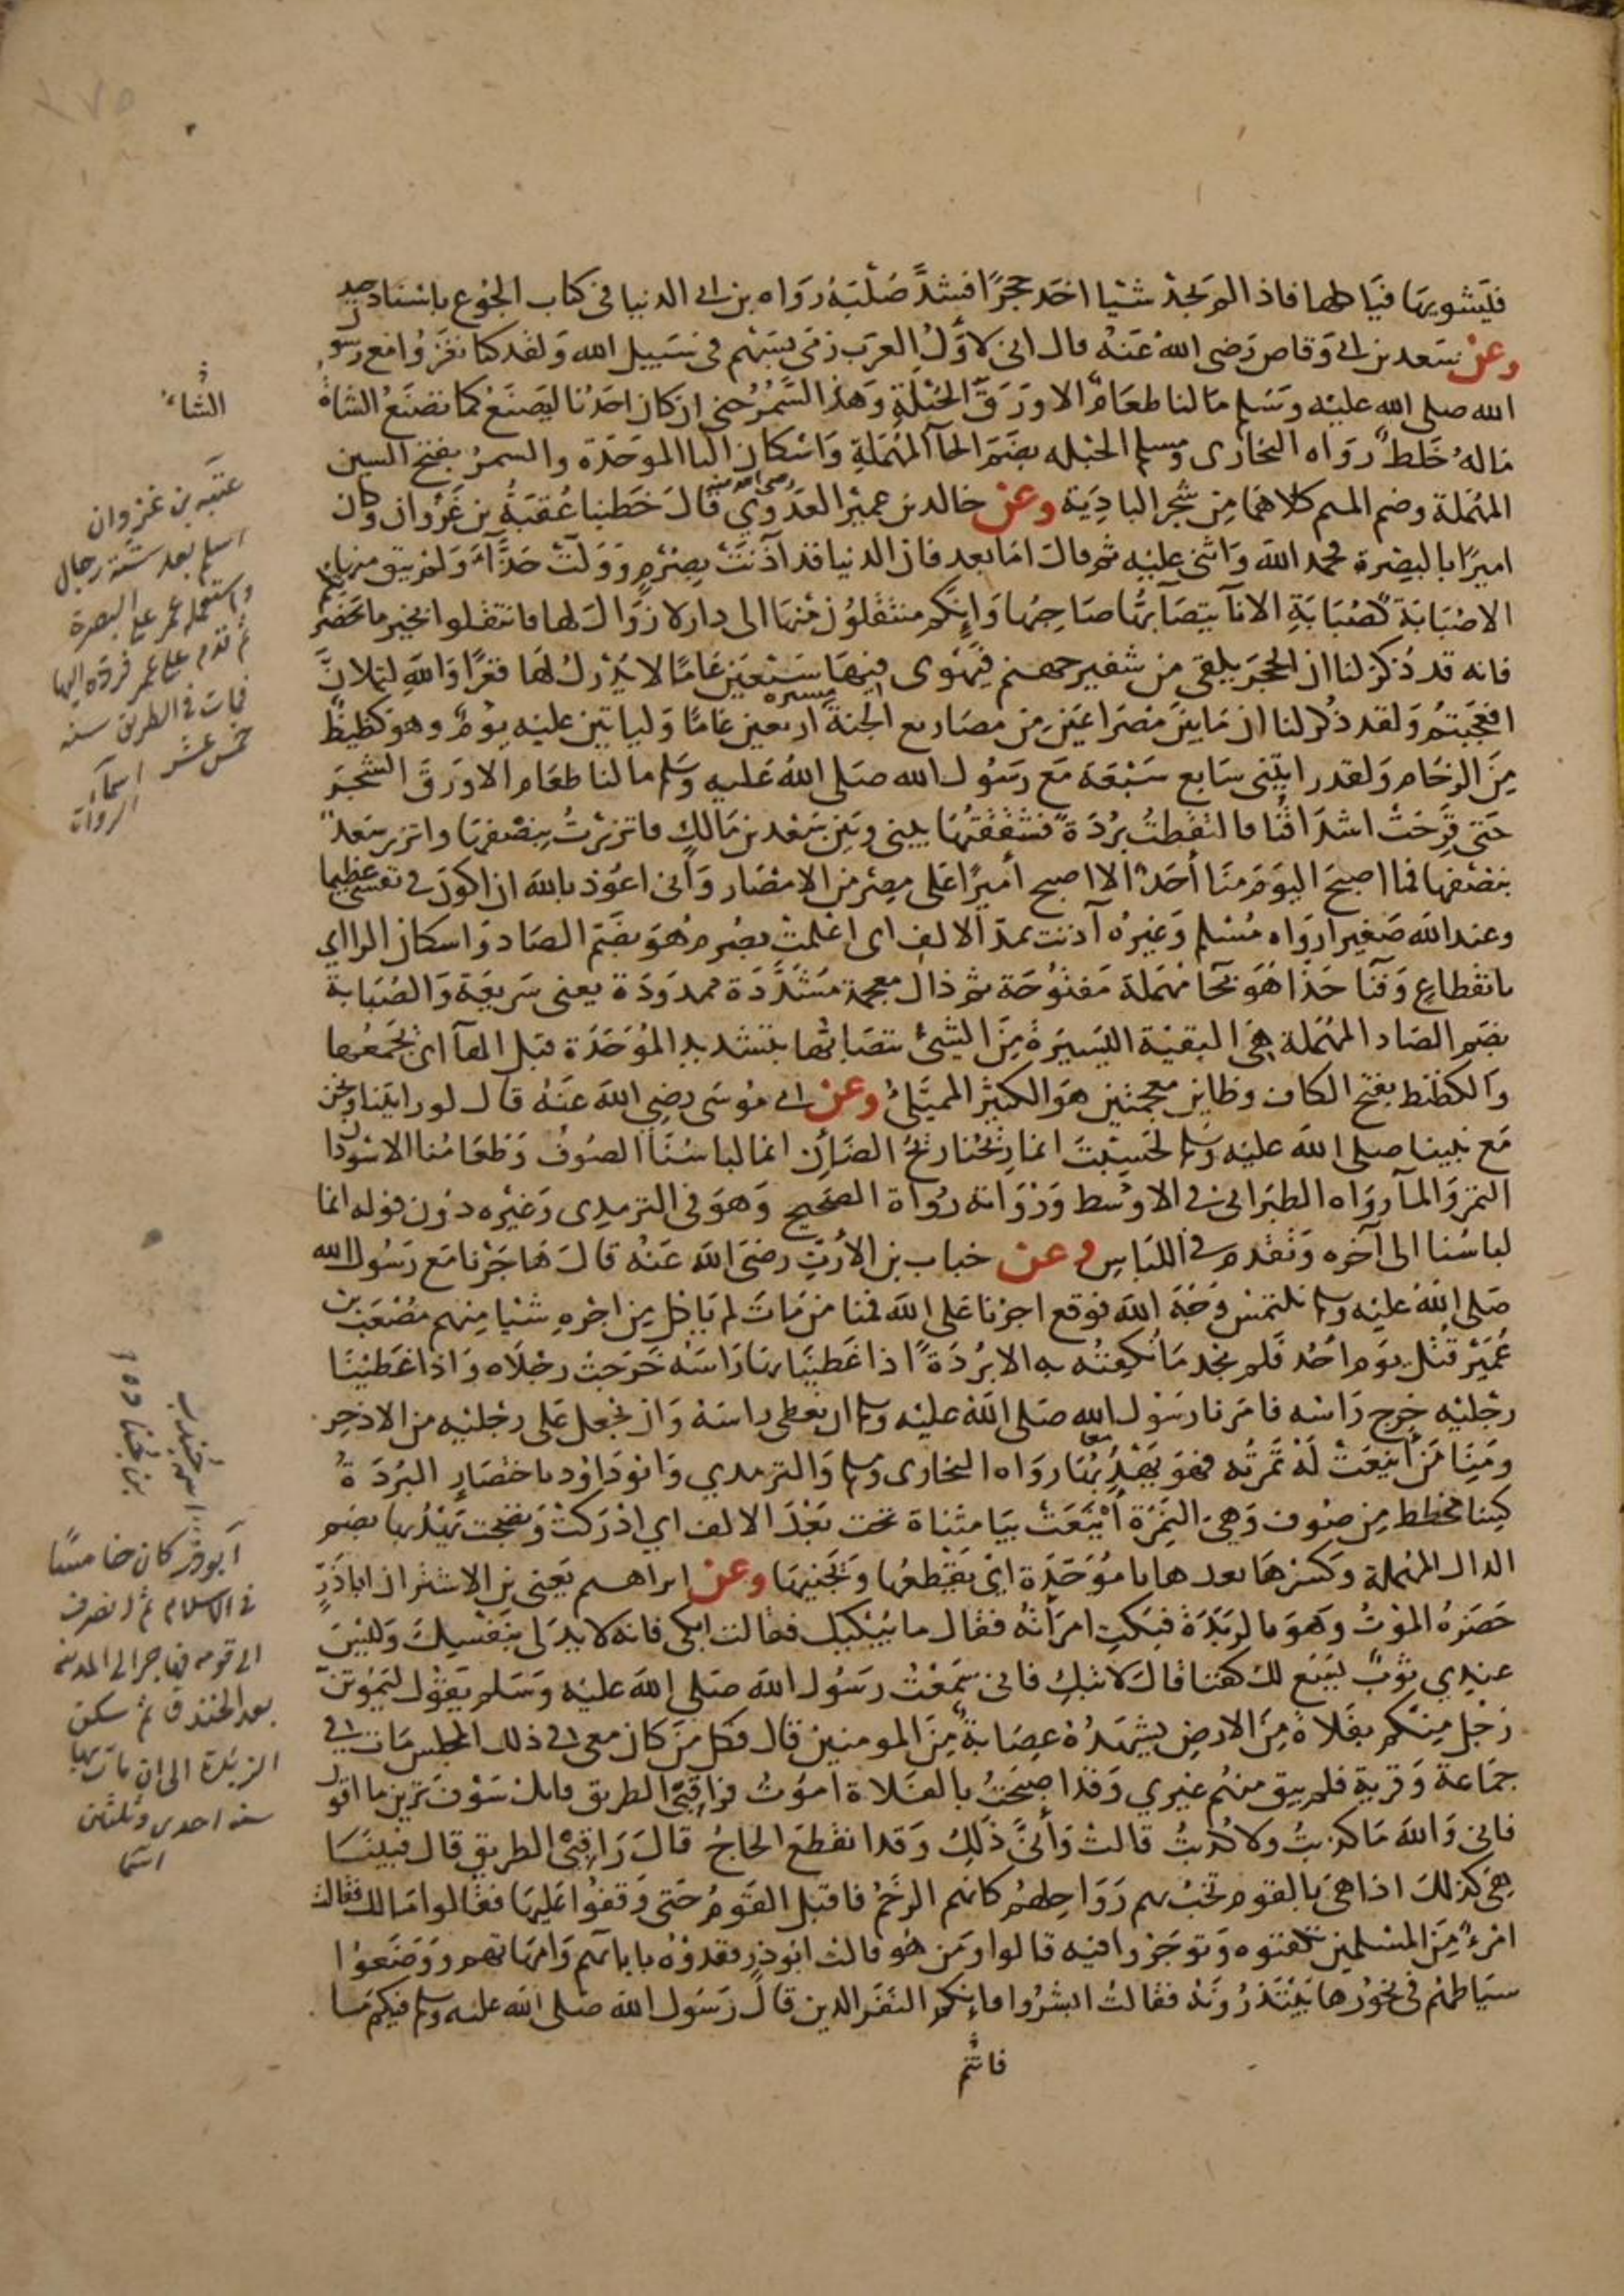 فيشويها فياكلها فاذا لم يجد شيئا اخذ حجرًا فشدَّ صُلْبَهُ رَوَاه بن ابي الدنيا في كتاب الجُوْع باسْنَاد جيد
وعن سَعد بن ابي وَقاص رَضي اللهُ عَنْهُ قال اني لاوَّلُ العرَب رَمَى بسَهْم في سَبيل الله وَلقد كنا نَغزُوا مع رسو
الله صلى الله عليْه وَسَلم مَا لنا طعَامٌ الا وَرَقُ الحُبْلَةِ وَهَذا السَّمُرُ حتى ان كان احَدُنا ليَضَعُ كما تضَعُ الشاةُ
مَالهُ خَلط رَوَاه البخارى ومسلم الحُبْله بضَمّ الحآ المُهْمَلةِ وَاسْكان البا الموَحَدَة والسمرُ بفتح السين
المُهْمَلة وضم الميم كلاهُمَا مِن شَجر البادِيَة وعن خالد بن عميْر العَدَوِي رضى الله عنه قالَ خَطبنا عُقبَةُ بن غَزْوان وكان
اميرًا بالبصْرة فحمد اللهَ وَاثنى عليْه ثم قالَ امَا بعد فان الدنيا قد آذَنَتْ بصُرْمٍ وَوَلَتْ حَذَّآءَ وَلمْ يبق منها
الا صُبَابَة كصُبَابَةِ الانآ يتصَآبّها صَاحِبُها وَانِكم منتقلوُن مِنْهَا الى دار لا زَوَالَ لها فانتقلوا بخير ما بحَضرتكم
فانه قد ذُكرَ لنا ان الحجَر يلقى من شفير جهنم فيَهْوى فيها سَبْعَيْن عَامًا لا يُدْرك لهَا قعْرًا وَاللهِ لتملأنَّ
افعَجبْتُم وَلقد ذُكر لنا ان مَا بينَ مِصْرَاعَيْن مِن مصَاريع الجنة مسيره اربعين عَامًا وَلياتين عليْه يوْمٌ وهو كظيظ
مِنَ الزحَامِ وَلقد رايتني سَابع سَبْعَة مَع رَسُول الله صَلى اللهُ عَليه وَسَلم ما لنا طعَام الا وَرَقُ الشجَر
حَتى قرِحَتْ اشْدَاقُنَا فالتقطتُ بُرْدَةً فشققتها بيني وبَين سَعْد بن مَالكٍ فاتزرْتُ بنصْفِهَا واتزر سَعدٌ
بنصْفِهَا فما اصبحَ اليوَمَ مِنَا أحَدٌ الا اصبح أميرًا عَلى مِصْر من الامْصَار وَاني اعُوْذ بالله ان اكونَ في نفسي عَظيما
وعند الله صَغيرًا رَوَاه مُسْلم وَغيْرُه آذنت بمدّ الالف اى اعْلمتْ بصُرم هُوَ بضَمّ الصَاد وَاسكان الرا اي
بانقطاعٍ وَفَنَا حَذَّا هُوَ بحَآ مُهْمَلة مَفتوُحَة ثم ذال معجمة مشَدَّدَة ممدوَدَة يعنى سَريعَة وَالصُبَابة
بضَم الصَاد المهْمَلة هِيَ البقيّة اليَسيْرَة مِنَ الشئ يتصَآبّها بتشْديد المُوَحَدَة قبل الهآ اى يجمَعُها
وَالكظيظ بفتح الكاف وظاين معجمتين هَوَ الكثيْر الممتلئُ وعَن ابي مُوسَى رضِي اللهَ عَنْهُ قال لو رايتنا وَنحن
مَع نبينا صلى الله عليْه وسلم لحَسِبْتَ انما رِيْحُنا رِيْحُ الضَأن انما لبَاسُنا الصُوفُ وَطعَامُنا الاسْودَا
التمرُ وَالمآ رَوَاه الطبَرَاني في الاوسَط وَرُوَاته رُوَاة الصَحيح وَهوَ في الترمذِى وَغيْره دوُن قوله انما
لبَاسُنا الى آخره وَتقدم في اللبَاس وعن خباب بن الأرَتِّ رضيَ الله عَنْهُ قالَ هَاجَرْنا مَع رَسُول الله
صَلى اللهُ عليْه وسلم نلتمسُ وَجْهَ الله فوقع اجرُنا عَلى الله فمنا مَن مَاتَ لم يَاكل مِن اجْرِه شيْا مِنهم مُصْعَبُ بن
عُمَيْر قُتلَ يوَم احُد فلم نجد مَا نُكفِنُه به الا بُرْدَةً اذا غَطيْنا بهَا رَاسَهُ خَرَجتْ رجلاَه وَاذا غطيْنَا
رجْليْه خرج رَاسُه فامَرنا رسُول الله صَلى اللهُ عليْه وسلم ان نغطي راسَهُ وَان نجعَل عَلى رجْليْه من الاذخِر
ومَنِا مَن أينعَتْ لهُ ثمرتُه فهوَ يَهْدِبُهَا رواه البخارى ومسلم وَالترمدي وَابُودَاوُد باختصَارٍ البُرْدَةُ
كسَا مخطط مِن صُوف وَهِيَ النِمَرة أيْنَعَتْ بيَا مثناة تحت بَعْدَ الالف اي ادْرَكتْ وَنضجت يَهْدُبها بضَم
الدال المُهْملة وَكسْرهَا بعدها با مُوَحَدَة ايْ يَقطعُها وَيَجْنيهَا وعن ابراهيم يَعني بن الاشتر ان اباذَرٍّ
حَضَرَهُ الموْتُ وَهوَ بالرَبَذَة فبَكت امرَأتُه فقال ما يُبْكيكِ فقالت ابكي فانه لا يدَ لي بنفسِكَ وَليْسَ
عندِي ثوْبٌ يَسَع لكَ كفنا قالَ لا تبكِ فاني سَمعْتُ رَسُول الله صَلى الله عَليْه وَسَلم يَقوْل ليَمُوْتنّ
رَجُل مِنكم بفَلاة مِنَ الارضِ يشهَدُهُ عِصَابةٌ مِنَ المومنين قال فكل مَن كان معى في ذلك المجلس مَات في
جمَاعة وَقرية فلم يبق منهُم غيري وَقد اصبَحْتُ بالفَلاة امَوُت فرَاقبي الطريق فانك سَوْفَ ترين ما اقول
فاني وَاللهِ مَا كذبتُ ولا كُذِبتُ قالتْ وَأنَّى ذَلِكَ وَقد انقطعَ الحاجُ قالَ رَاقبي الطريق قال فبينَا
هِيَ كذلكَ اذا هيَ بالقوم تخبُ بهم رَوَاحِلهُم كانهم الرَخَمُ فاقبل القوْمُ حَتى وَقفُوْا عَليْهَا فقالوا مَا لك فقالت
امْرءٌ مِنَ المسْلمين تكفنوه وَتوَجَرُوا فيه قالوا ومَن هُو قالت ابوذر ففدوْهُ باباءِهم وَامهَاتهم وَوَضَعوْا
سيَاطهُم في نحوُرها يَبْتدرُونَهُ فقالتْ ابشرُوا فانكم النَفَر الذين قالَ رَسُول الله صَلى الله عليْه وسلم فيكم مَا
فانتم
الشاء
عتبه بن غزوان
اسلم بعد ستة رجال
واستعمله عمر على البصرة
ثم قدم على عمر فرده اليها
فمات في الطريق سنه
خمس عشر اسمآء
الروات
اسمه جندب
بن جناده
أبوذر كان خامسًا
في الاسلام ثم انصرف
الى قومه فهاجر الى المدينة
بعد الخندق ثم سكن
الربذة الى ان مات بها
سنه احدى وثلثين
اسما